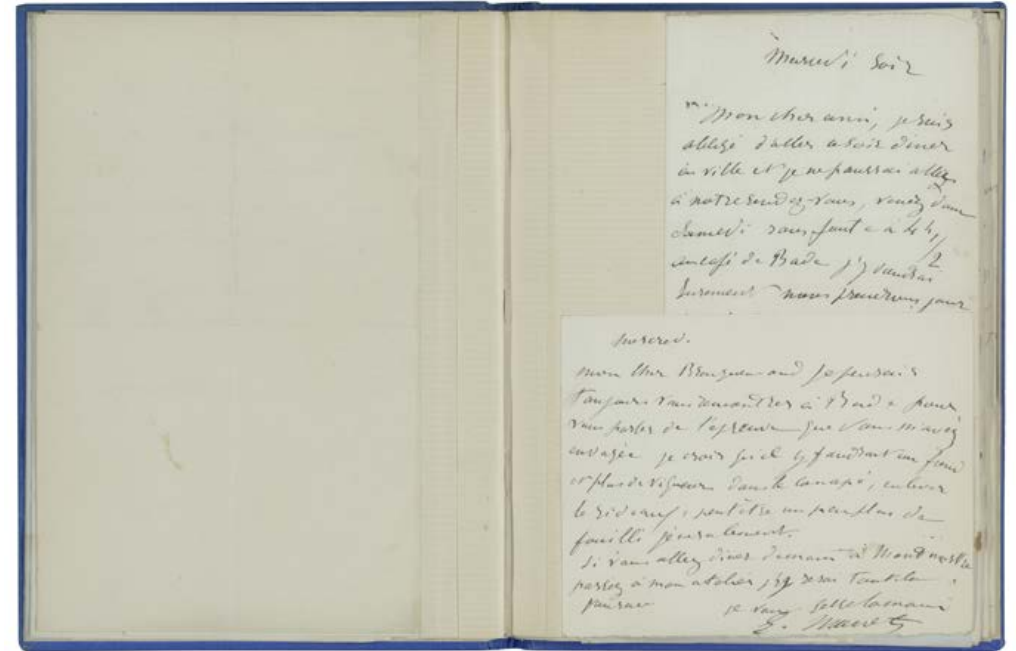 Mercredi Soir
Mon cher ami, je suis
obligé d'aller ce soir diner
en ville et je ne pourrai aller
à notre rendez-vous, venez donc
Samedi sans faute à 4 h 1/2
au café de Bade j'y viendrai
surement nous prendrons jour
mercred.
mon cher Bracquemond je pensais
toujours vous rencontrer à Bade pour
vous parler de l'épreuve que vous m'avez
envoyée je crois qu'il y faudrait un fond
et plus de vigueur dans le canapé, enlever
le rideau, peut être un peu plus de
fouilli généralement.
Si vous allez diner demain à Montmartre
passez à mon atelier j'y serai toute la
je vous serre la main
E. Manet